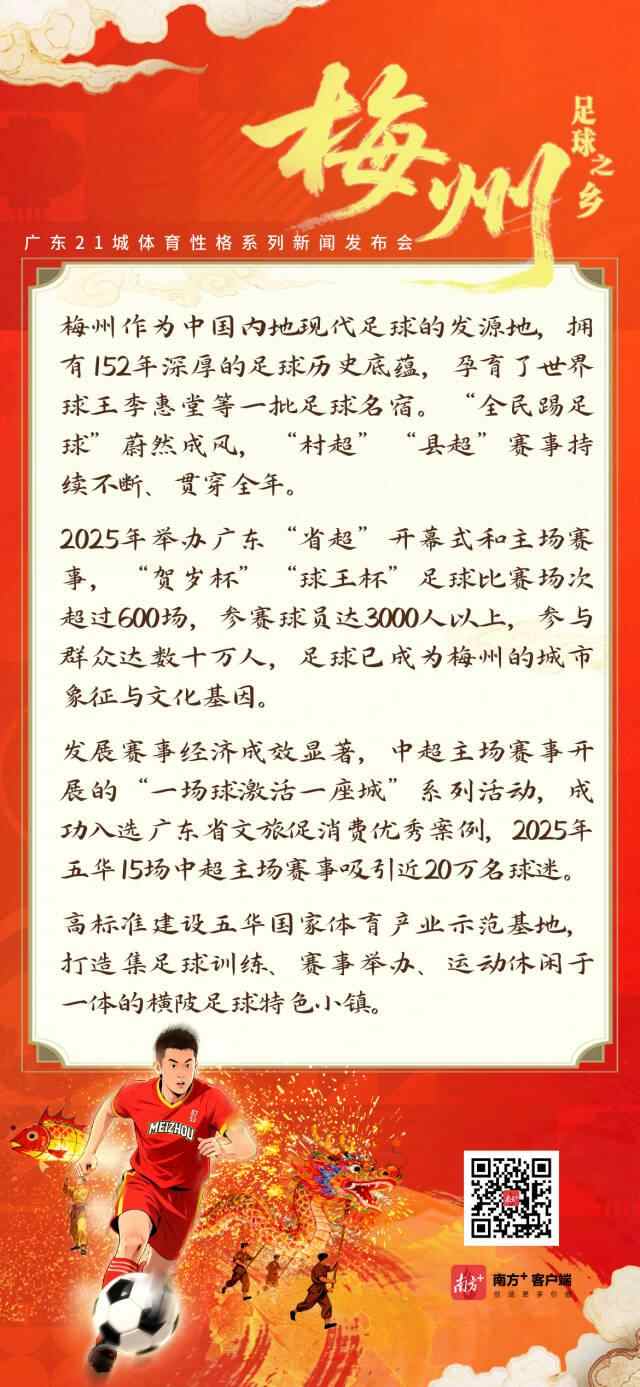 梅州
足球之乡
广东21城体育性格系列新闻发布会
梅州作为中国内地现代足球的发源地，拥
有152年深厚的足球历史底蕴，孕育了世界
球王李惠堂等一批足球名宿。“全民踢足
球”蔚然成风，“村超”“县超”赛事持
续不断、贯穿全年。
2025年举办广东“省超”开幕式和主场赛
事，“贺岁杯”“球王杯”足球比赛场次
超过600场，参赛球员达3000人以上，参与
群众达数十万人，足球已成为梅州的城市
象征与文化基因。
发展赛事经济成效显著，中超主场赛事开
展的“一场球激活一座城”系列活动，成
功入选广东省文旅促消费优秀案例，2025年
五华15场中超主场赛事吸引近20万名球迷。
高标准建设五华国家体育产业示范基地，
打造集足球训练、赛事举办、运动休闲于
一体的横陂足球特色小镇。
MEIZHOU
南方+
南方+
南方+ 客户端